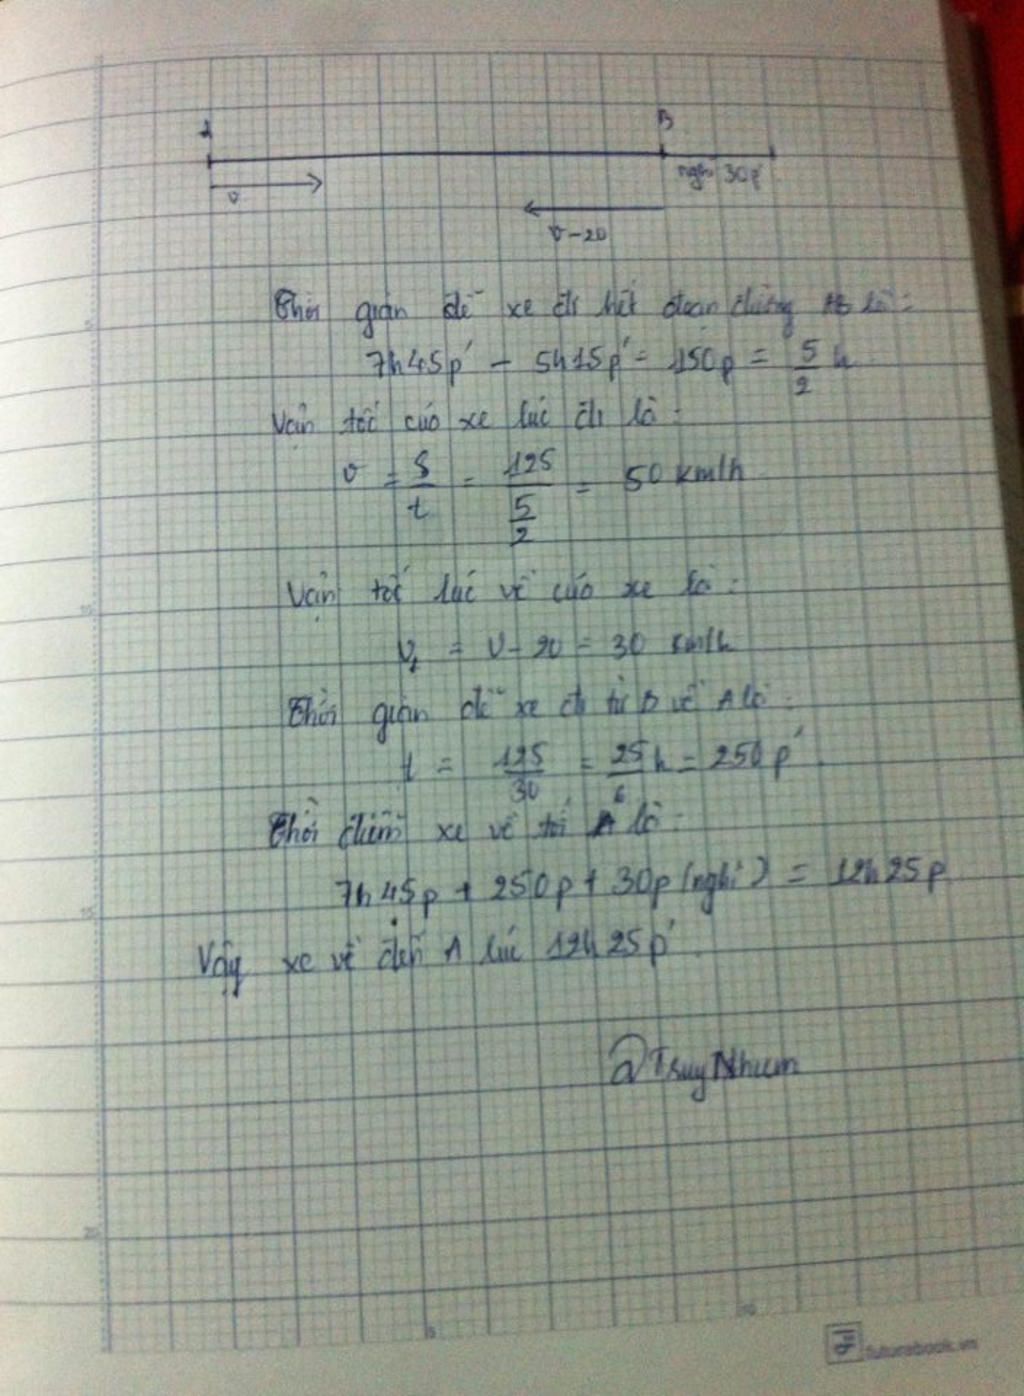 A B
v nghỉ 30p'
v-20
Thời gian để xe đi hết đoạn đường AB là:
7h45p' - 5h15p' = 150p = 5/2 h
Vận tốc của xe lúc đi là:
v = S/t = 125/(5/2) = 50 km/h
Vận tốc lúc về của xe là:
v₁ = v - 20 = 30 km/h
Thời gian để xe đi từ B về A là:
t = 125/30 = 25/6 h = 250p'
Thời điểm xe về tới A là:
7h45p + 250p + 30p (nghỉ) = 12h25p
Vậy xe về đến A lúc 12h25p'.
@TruyNhum
5
10
15
20
5
10
futurebook.vn